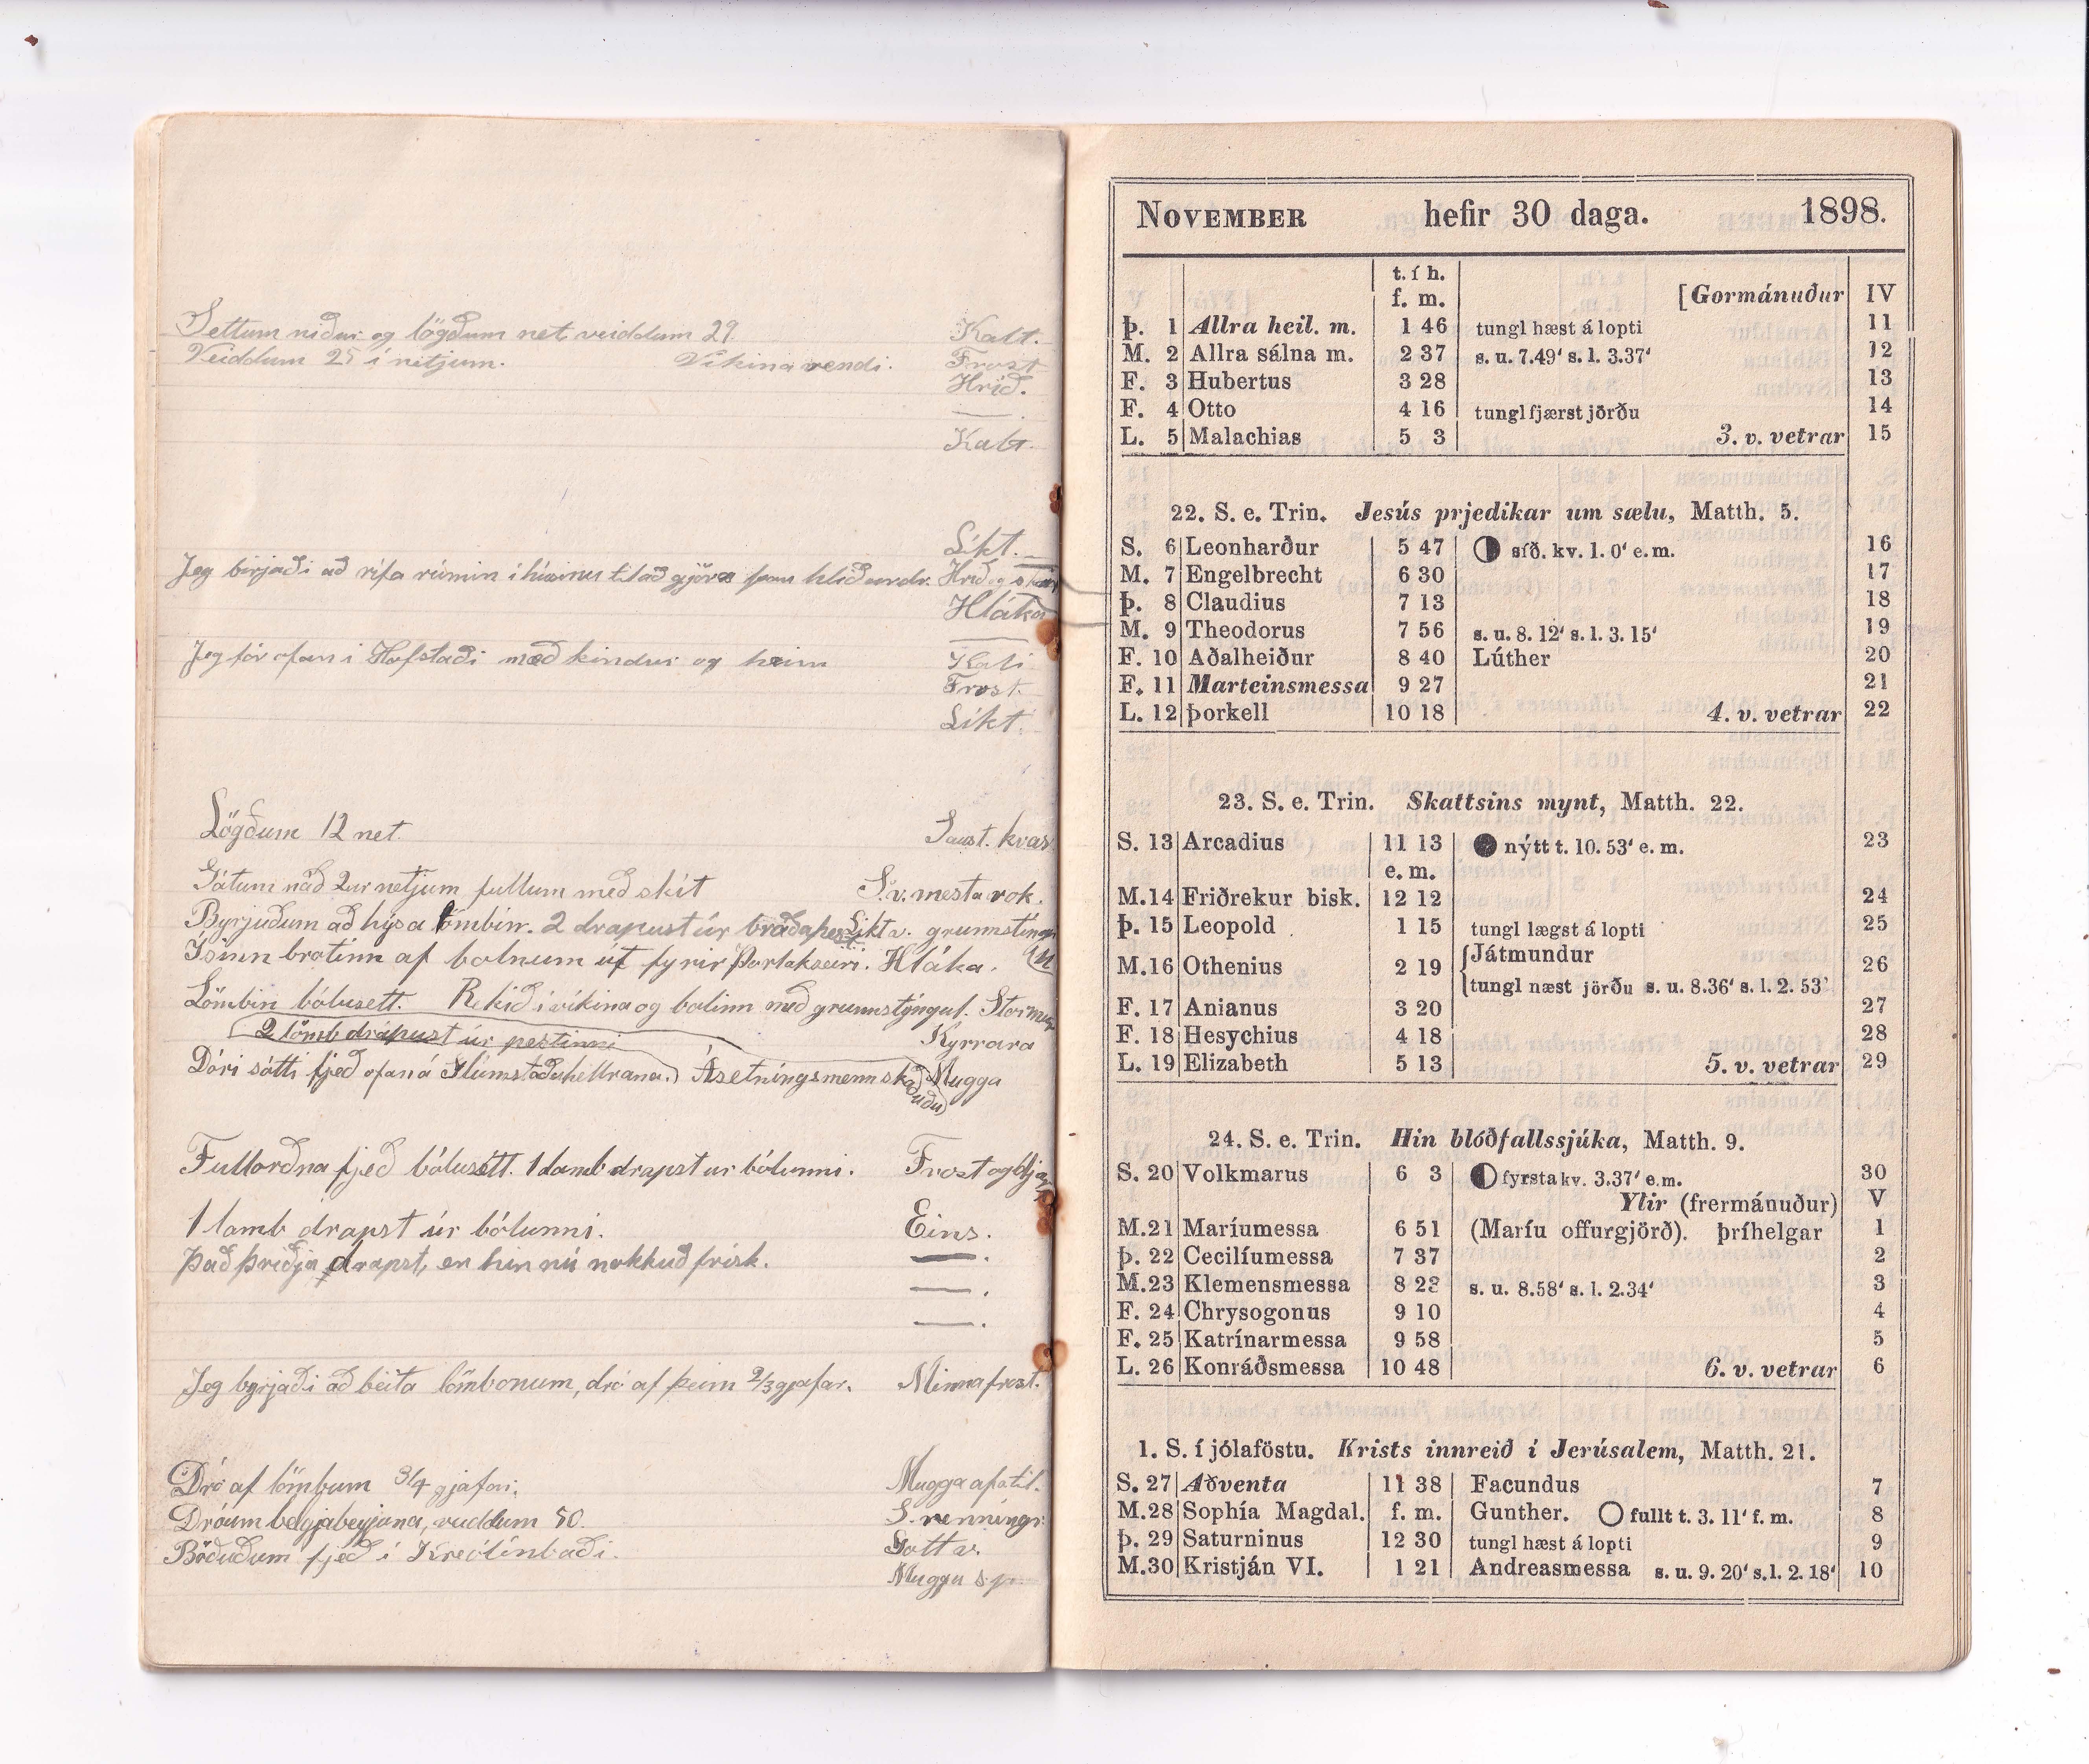 Settum niður og lögðum net veiddum 29. Kalt.
Veiddum 25 í netjum. Víkina rendi. Frost
Hríð.
—
Kalt.
Líkt.
Jeg birjaði að rífa rúmin í húsinu til að gjöra þau hlið Hríð og
Hláka
—
Jeg fór ofan í Hofstaði með kindur og heim Kali
Frost.
Líkt.
Lögðum 12 net. kvas
Gátum náð 2ur netjum fullum með skít S.v. mesta rok.
Byrjuðum að hýsa lömbin. 2 drapust úr bráðapest Líkt v. grunnstíng
Ísinn brotinn af bolnum út fyrir Þorlákseiri. Hláka.
Lömbin bólusett. Rekið í víkina og bolinn með grunnstýngul. Stormur
2 lömb drápust úr pestinni Kyrrara
Dóri sótti fjeð ofan á Ásetningsmenn skoðuðu Mugga
Fullorðna fjeð bólusett. 1 lamb drapst úr bólunni. Frost og
1 lamb drapst úr bólunni. Eins.
Það þriðja drapst, en hin nú nokkuð frísk. —
—.
—.
Jeg byrjaði að beita lömbonum, dró af þeim 2/3 gjafar. Minna frost.
Dró af lömbum 3/4 gjafar. Mugga af
Dróum 50. S. renníngr.
Böðuðum fjeð í Kreólínbaði. Gott v.
Mugga
NOVEMBER hefir 30 daga. 1898.
t. í h.
f. m. [Gormánuður IV
Þ. 1 Allra heil. m. 1 46 tungl hæst á lopti 11
M. 2 Allra sálna m. 2 37 s. u. 7.49' s. l. 3.37' 12
F. 3 Hubertus 3 28 13
F. 4 Otto 4 16 tungl fjærst jörðu 14
L. 5 Malachias 5 3 3. v. vetrar 15
22. S. e. Trin. Jesús prjedikar um sælu, Matth. 5.
S. 6 Leonharður 5 47 síð. kv. 1. 0' e. m. 16
M. 7 Engelbrecht 6 30 17
Þ. 8 Claudius 7 13 18
M. 9 Theodorus 7 56 s. u. 8. 12' s. l. 3. 15' 19
F. 10 Aðalheiður 8 40 Lúther 20
F. 11 Marteinsmessa 9 27 21
L. 12 Þorkell 10 18 4. v. vetrar 22
23. S. e. Trin. Skattsins mynt, Matth. 22.
S. 13 Arcadius 11 13 nýtt t. 10. 53' e. m. 23
e. m.
M. 14 Friðrekur bisk. 12 12 24
Þ. 15 Leopold 1 15 tungl lægst á lopti 25
M. 16 Othenius 2 19 {Játmundur 26
tungl næst jörðu s. u. 8.36' s. l. 2. 53'
F. 17 Anianus 3 20 27
F. 18 Hesychius 4 18 28
L. 19 Elizabeth 5 13 5. v. vetrar 29
24. S. e. Trin. Hin blóðfallssjúka, Matth. 9.
S. 20 Volkmarus 6 3 fyrsta kv. 3.37' e. m. 30
Ylir (frermánuður) V
M. 21 Maríumessa 6 51 (Maríu offurgjörð). Þríhelgar 1
Þ. 22 Cecilíumessa 7 37 2
M. 23 Klemensmessa 8 23 s. u. 8.58' s. l. 2.34' 3
F. 24 Chrysogonus 9 10 4
F. 25 Katrínarmessa 9 58 5
L. 26 Konráðsmessa 10 48 6. v. vetrar 6
1. S. í jólaföstu. Krists innreið í Jerúsalem, Matth. 21.
S. 27 Aðventa 11 38 Facundus 7
M. 28 Sophía Magdal. f. m. Gunther. fullt t. 3. 11' f. m. 8
Þ. 29 Saturninus 12 30 tungl hæst á lopti 9
M. 30 Kristján VI. 1 21 Andreasmessa s. u. 9. 20' s. l. 2. 18' 10